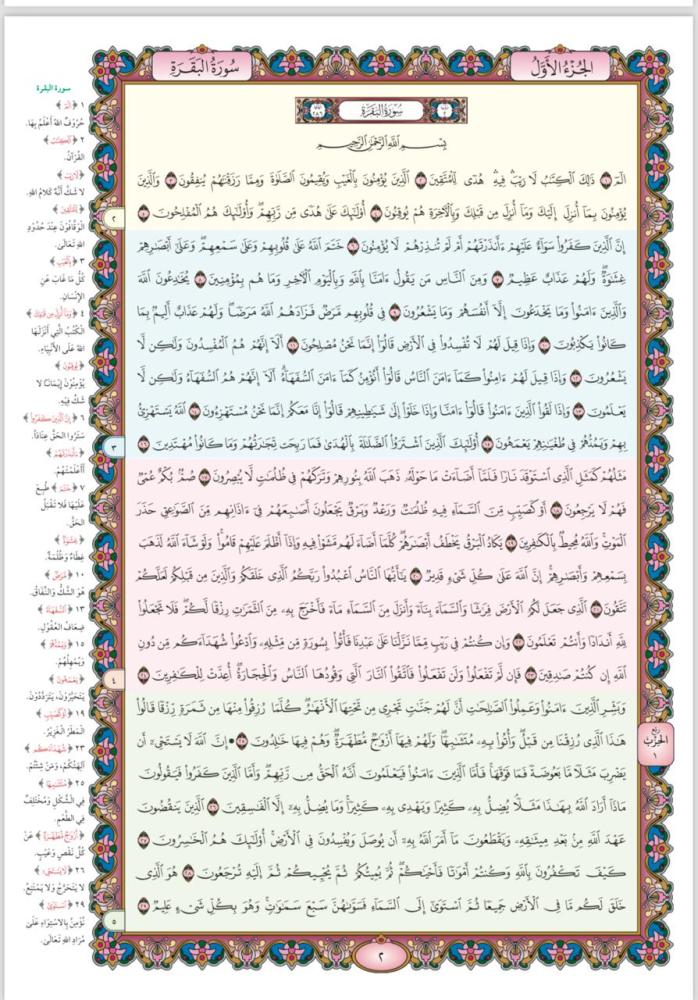 الجُزْءُ الأَوَّلُ
سُورَةُ البَقَرَةِ
سُورَةُ البَقَرَةِ
بِسْمِ اللَّهِ الرَّحْمَٰنِ الرَّحِيمِ
الٓمٓ ١ ذَٰلِكَ ٱلْكِتَٰبُ لَا رَيْبَۛ فِيهِۛ هُدًى لِّلْمُتَّقِينَ ٢ ٱلَّذِينَ يُؤْمِنُونَ بِٱلْغَيْبِ وَيُقِيمُونَ ٱلصَّلَوٰةَ وَمِمَّا رَزَقْنَٰهُمْ يُنفِقُونَ ٣ وَٱلَّذِينَ
يُؤْمِنُونَ بِمَآ أُنزِلَ إِلَيْكَ وَمَآ أُنزِلَ مِن قَبْلِكَ وَبِٱلْءَاخِرَةِ هُمْ يُوقِنُونَ ٤ أُو۟لَٰٓئِكَ عَلَىٰ هُدًى مِّن رَّبِّهِمْۖ وَأُو۟لَٰٓئِكَ هُمُ ٱلْمُفْلِحُونَ ٥
إِنَّ ٱلَّذِينَ كَفَرُوا۟ سَوَآءٌ عَلَيْهِمْ ءَأَنذَرْتَهُمْ أَمْ لَمْ تُنذِرْهُمْ لَا يُؤْمِنُونَ ٦ خَتَمَ ٱللَّهُ عَلَىٰ قُلُوبِهِمْ وَعَلَىٰ سَمْعِهِمْۖ وَعَلَىٰٓ أَبْصَٰرِهِمْ
غِشَٰوَةٌۖ وَلَهُمْ عَذَابٌ عَظِيمٌ ٧ وَمِنَ ٱلنَّاسِ مَن يَقُولُ ءَامَنَّا بِٱللَّهِ وَبِٱلْيَوْمِ ٱلْءَاخِرِ وَمَا هُم بِمُؤْمِنِينَ ٨ يُخَٰدِعُونَ ٱللَّهَ
وَٱلَّذِينَ ءَامَنُوا۟ وَمَا يَخْدَعُونَ إِلَّآ أَنفُسَهُمْ وَمَا يَشْعُرُونَ ٩ فِى قُلُوبِهِم مَّرَضٌ فَزَادَهُمُ ٱللَّهُ مَرَضًاۖ وَلَهُمْ عَذَابٌ أَلِيمٌۢ بِمَا
كَانُوا۟ يَكْذِبُونَ ١٠ وَإِذَا قِيلَ لَهُمْ لَا تُفْسِدُوا۟ فِى ٱلْأَرْضِ قَالُوٓا۟ إِنَّمَا نَحْنُ مُصْلِحُونَ ١١ أَلَآ إِنَّهُمْ هُمُ ٱلْمُفْسِدُونَ وَلَٰكِن لَّا
يَشْعُرُونَ ١٢ وَإِذَا قِيلَ لَهُمْ ءَامِنُوا۟ كَمَآ ءَامَنَ ٱلنَّاسُ قَالُوٓا۟ أَنُؤْمِنُ كَمَآ ءَامَنَ ٱلسُّفَهَآءُۗ أَلَآ إِنَّهُمْ هُمُ ٱلسُّفَهَآءُ وَلَٰكِن لَّا
يَعْلَمُونَ ١٣ وَإِذَا لَقُوا۟ ٱلَّذِينَ ءَامَنُوا۟ قَالُوٓا۟ ءَامَنَّا وَإِذَا خَلَوْا۟ إِلَىٰ شَيَٰطِينِهِمْ قَالُوٓا۟ إِنَّا مَعَكُمْ إِنَّمَا نَحْنُ مُسْتَهْزِءُونَ ١٤ ٱللَّهُ يَسْتَهْزِئُ
بِهِمْ وَيَمُدُّهُمْ فِى طُغْيَٰنِهِمْ يَعْمَهُونَ ١٥ أُو۟لَٰٓئِكَ ٱلَّذِينَ ٱشْتَرَوُا۟ ٱلضَّلَٰلَةَ بِٱلْهُدَىٰ فَمَا رَبِحَت تِّجَٰرَتُهُمْ وَمَا كَانُوا۟ مُهْتَدِينَ ١٦
مَثَلُهُمْ كَمَثَلِ ٱلَّذِى ٱسْتَوْقَدَ نَارًا فَلَمَّآ أَضَآءَتْ مَا حَوْلَهُۥ ذَهَبَ ٱللَّهُ بِنُورِهِمْ وَتَرَكَهُمْ فِى ظُلُمَٰتٍ لَّا يُبْصِرُونَ ١٧ صُمٌّۢ بُكْمٌ عُمْىٌ
فَهُمْ لَا يَرْجِعُونَ ١٨ أَوْ كَصَيِّبٍ مِّنَ ٱلسَّمَآءِ فِيهِ ظُلُمَٰتٌ وَرَعْدٌ وَبَرْقٌ يَجْعَلُونَ أَصَٰبِعَهُمْ فِىٓ ءَاذَانِهِم مِّنَ ٱلصَّوَٰعِقِ حَذَرَ
ٱلْمَوْتِۚ وَٱللَّهُ مُحِيطٌۢ بِٱلْكَٰفِرِينَ ١٩ يَكَادُ ٱلْبَرْقُ يَخْطَفُ أَبْصَٰرَهُمْۖ كُلَّمَآ أَضَآءَ لَهُم مَّشَوْا۟ فِيهِ وَإِذَآ أَظْلَمَ عَلَيْهِمْ قَامُوا۟ۚ وَلَوْ شَآءَ ٱللَّهُ لَذَهَبَ
بِسَمْعِهِمْ وَأَبْصَٰرِهِمْۚ إِنَّ ٱللَّهَ عَلَىٰ كُلِّ شَىْءٍ قَدِيرٌ ٢٠ يَٰٓأَيُّهَا ٱلنَّاسُ ٱعْبُدُوا۟ رَبَّكُمُ ٱلَّذِى خَلَقَكُمْ وَٱلَّذِينَ مِن قَبْلِكُمْ لَعَلَّكُمْ
تَتَّقُونَ ٢١ ٱلَّذِى جَعَلَ لَكُمُ ٱلْأَرْضَ فِرَٰشًا وَٱلسَّمَآءَ بِنَآءً وَأَنزَلَ مِنَ ٱلسَّمَآءِ مَآءً فَأَخْرَجَ بِهِۦ مِنَ ٱلثَّمَرَٰتِ رِزْقًا لَّكُمْۖ فَلَا تَجْعَلُوا۟
لِلَّهِ أَندَادًا وَأَنتُمْ تَعْلَمُونَ ٢٢ وَإِن كُنتُمْ فِى رَيْبٍ مِّمَّا نَزَّلْنَا عَلَىٰ عَبْدِنَا فَأْتُوا۟ بِسُورَةٍ مِّن مِّثْلِهِۦ وَٱدْعُوا۟ شُهَدَآءَكُم مِّن دُونِ
ٱللَّهِ إِن كُنتُمْ صَٰدِقِينَ ٢٣ فَإِن لَّمْ تَفْعَلُوا۟ وَلَن تَفْعَلُوا۟ فَٱتَّقُوا۟ ٱلنَّارَ ٱلَّتِى وَقُودُهَا ٱلنَّاسُ وَٱلْحِجَارَةُۖ أُعِدَّتْ لِلْكَٰفِرِينَ ٢٤
وَبَشِّرِ ٱلَّذِينَ ءَامَنُوا۟ وَعَمِلُوا۟ ٱلصَّٰلِحَٰتِ أَنَّ لَهُمْ جَنَّٰتٍ تَجْرِى مِن تَحْتِهَا ٱلْأَنْهَٰرُۖ كُلَّمَا رُزِقُوا۟ مِنْهَا مِن ثَمَرَةٍ رِّزْقًا قَالُوا۟
هَٰذَا ٱلَّذِى رُزِقْنَا مِن قَبْلُۖ وَأُتُوا۟ بِهِۦ مُتَشَٰبِهًاۖ وَلَهُمْ فِيهَآ أَزْوَٰجٌ مُّطَهَّرَةٌۖ وَهُمْ فِيهَا خَٰلِدُونَ ٢٥ إِنَّ ٱللَّهَ لَا يَسْتَحْىِۦٓ أَن
يَضْرِبَ مَثَلًا مَّا بَعُوضَةً فَمَا فَوْقَهَاۚ فَأَمَّا ٱلَّذِينَ ءَامَنُوا۟ فَيَعْلَمُونَ أَنَّهُ ٱلْحَقُّ مِن رَّبِّهِمْۖ وَأَمَّا ٱلَّذِينَ كَفَرُوا۟ فَيَقُولُونَ
مَاذَآ أَرَادَ ٱللَّهُ بِهَٰذَا مَثَلًاۘ يُضِلُّ بِهِۦ كَثِيرًا وَيَهْدِى بِهِۦ كَثِيرًاۚ وَمَا يُضِلُّ بِهِۦٓ إِلَّا ٱلْفَٰسِقِينَ ٢٦ ٱلَّذِينَ يَنقُضُونَ
عَهْدَ ٱللَّهِ مِنۢ بَعْدِ مِيثَٰقِهِۦ وَيَقْطَعُونَ مَآ أَمَرَ ٱللَّهُ بِهِۦٓ أَن يُوصَلَ وَيُفْسِدُونَ فِى ٱلْأَرْضِۚ أُو۟لَٰٓئِكَ هُمُ ٱلْخَٰسِرُونَ ٢٧
كَيْفَ تَكْفُرُونَ بِٱللَّهِ وَكُنتُمْ أَمْوَٰتًا فَأَحْيَٰكُمْۖ ثُمَّ يُمِيتُكُمْ ثُمَّ يُحْيِيكُمْ ثُمَّ إِلَيْهِ تُرْجَعُونَ ٢٨ هُوَ ٱلَّذِى
خَلَقَ لَكُم مَّا فِى ٱلْأَرْضِ جَمِيعًا ثُمَّ ٱسْتَوَىٰٓ إِلَى ٱلسَّمَآءِ فَسَوَّىٰهُنَّ سَبْعَ سَمَٰوَٰتٍۚ وَهُوَ بِكُلِّ شَىْءٍ عَلِيمٌ ٢٩
ربع
الحِزْب
١
٢
٣
٤
٥
٢
سورة البقرة
١ ﴿الٓمٓ﴾
حُرُوفٌ اللهُ أَعْلَمُ بِهَا.
٢ ﴿ٱلْكِتَٰبُ﴾
القُرْآنُ.
﴿لَا رَيْبَ﴾
لا شَكَّ أَنَّهُ كَلامُ اللهِ.
﴿لِّلْمُتَّقِينَ﴾
الوَقَّافُونَ عِنْدَ حُدُودِ
اللهِ تَعَالَى.
٣ ﴿بِٱلْغَيْبِ﴾
كُلُّ مَا غَابَ عَنِ
الإِنْسَانِ.
٤ ﴿وَمَآ أُنزِلَ مِن قَبْلِكَ﴾
الكُتُبُ الَّتِي أَنْزَلَهَا
اللهُ عَلَى الأَنْبِيَاءِ.
﴿يُوقِنُونَ﴾
يُؤْمِنُونَ إِيمَانًا لا
شَكَّ فِيهِ.
٦ ﴿إِنَّ ٱلَّذِينَ كَفَرُوا۟﴾
سَتَرُوا الحَقَّ عِنَادًا.
﴿ءَأَنذَرْتَهُمْ﴾
أَأَعْلَمْتَهُمْ.
٧ ﴿خَتَمَ﴾ طَبَعَ
عَلَيْهَا فَلا تَقْبَلُ
الحَقَّ.
﴿غِشَٰوَةٌ﴾
غِطَاءٌ وَظُلْمَةٌ.
١٠ ﴿مَّرَضٌ﴾
هُوَ الشَّكُّ وَالنِّفَاقُ.
١٣ ﴿ٱلسُّفَهَآءُ﴾
ضِعَافُ العُقُولِ.
١٥ ﴿وَيَمُدُّهُمْ﴾
وَيُمْهِلُهُمْ.
﴿يَعْمَهُونَ﴾
يَتَحَيَّرُونَ، يَتَرَدَّدُونَ.
١٩ ﴿أَوْ كَصَيِّبٍ﴾
المَطَرُ الغَزِيرُ.
٢٣ ﴿شُهَدَآءَكُم﴾
آلِهَتَكُمْ، وَمَنْ شِئْتُمْ.
٢٥ ﴿مُتَشَٰبِهًا﴾
فِي الشَّكْلِ وَمُخْتَلِفٌ
فِي الطَّعْمِ.
﴿أَزْوَٰجٌ مُّطَهَّرَةٌ﴾ عَنْ
كُلِّ نَقْصٍ وَعَيْبٍ.
٢٦ ﴿لَا يَسْتَحْىِۦٓ﴾
لا يَتَحَرَّجُ وَلا يَمْتَنِعُ.
٢٩ ﴿ٱسْتَوَىٰٓ﴾
نُؤْمِنُ بِالاسْتِوَاءِ عَلَى
مُرَادِ اللهِ تَعَالَى.